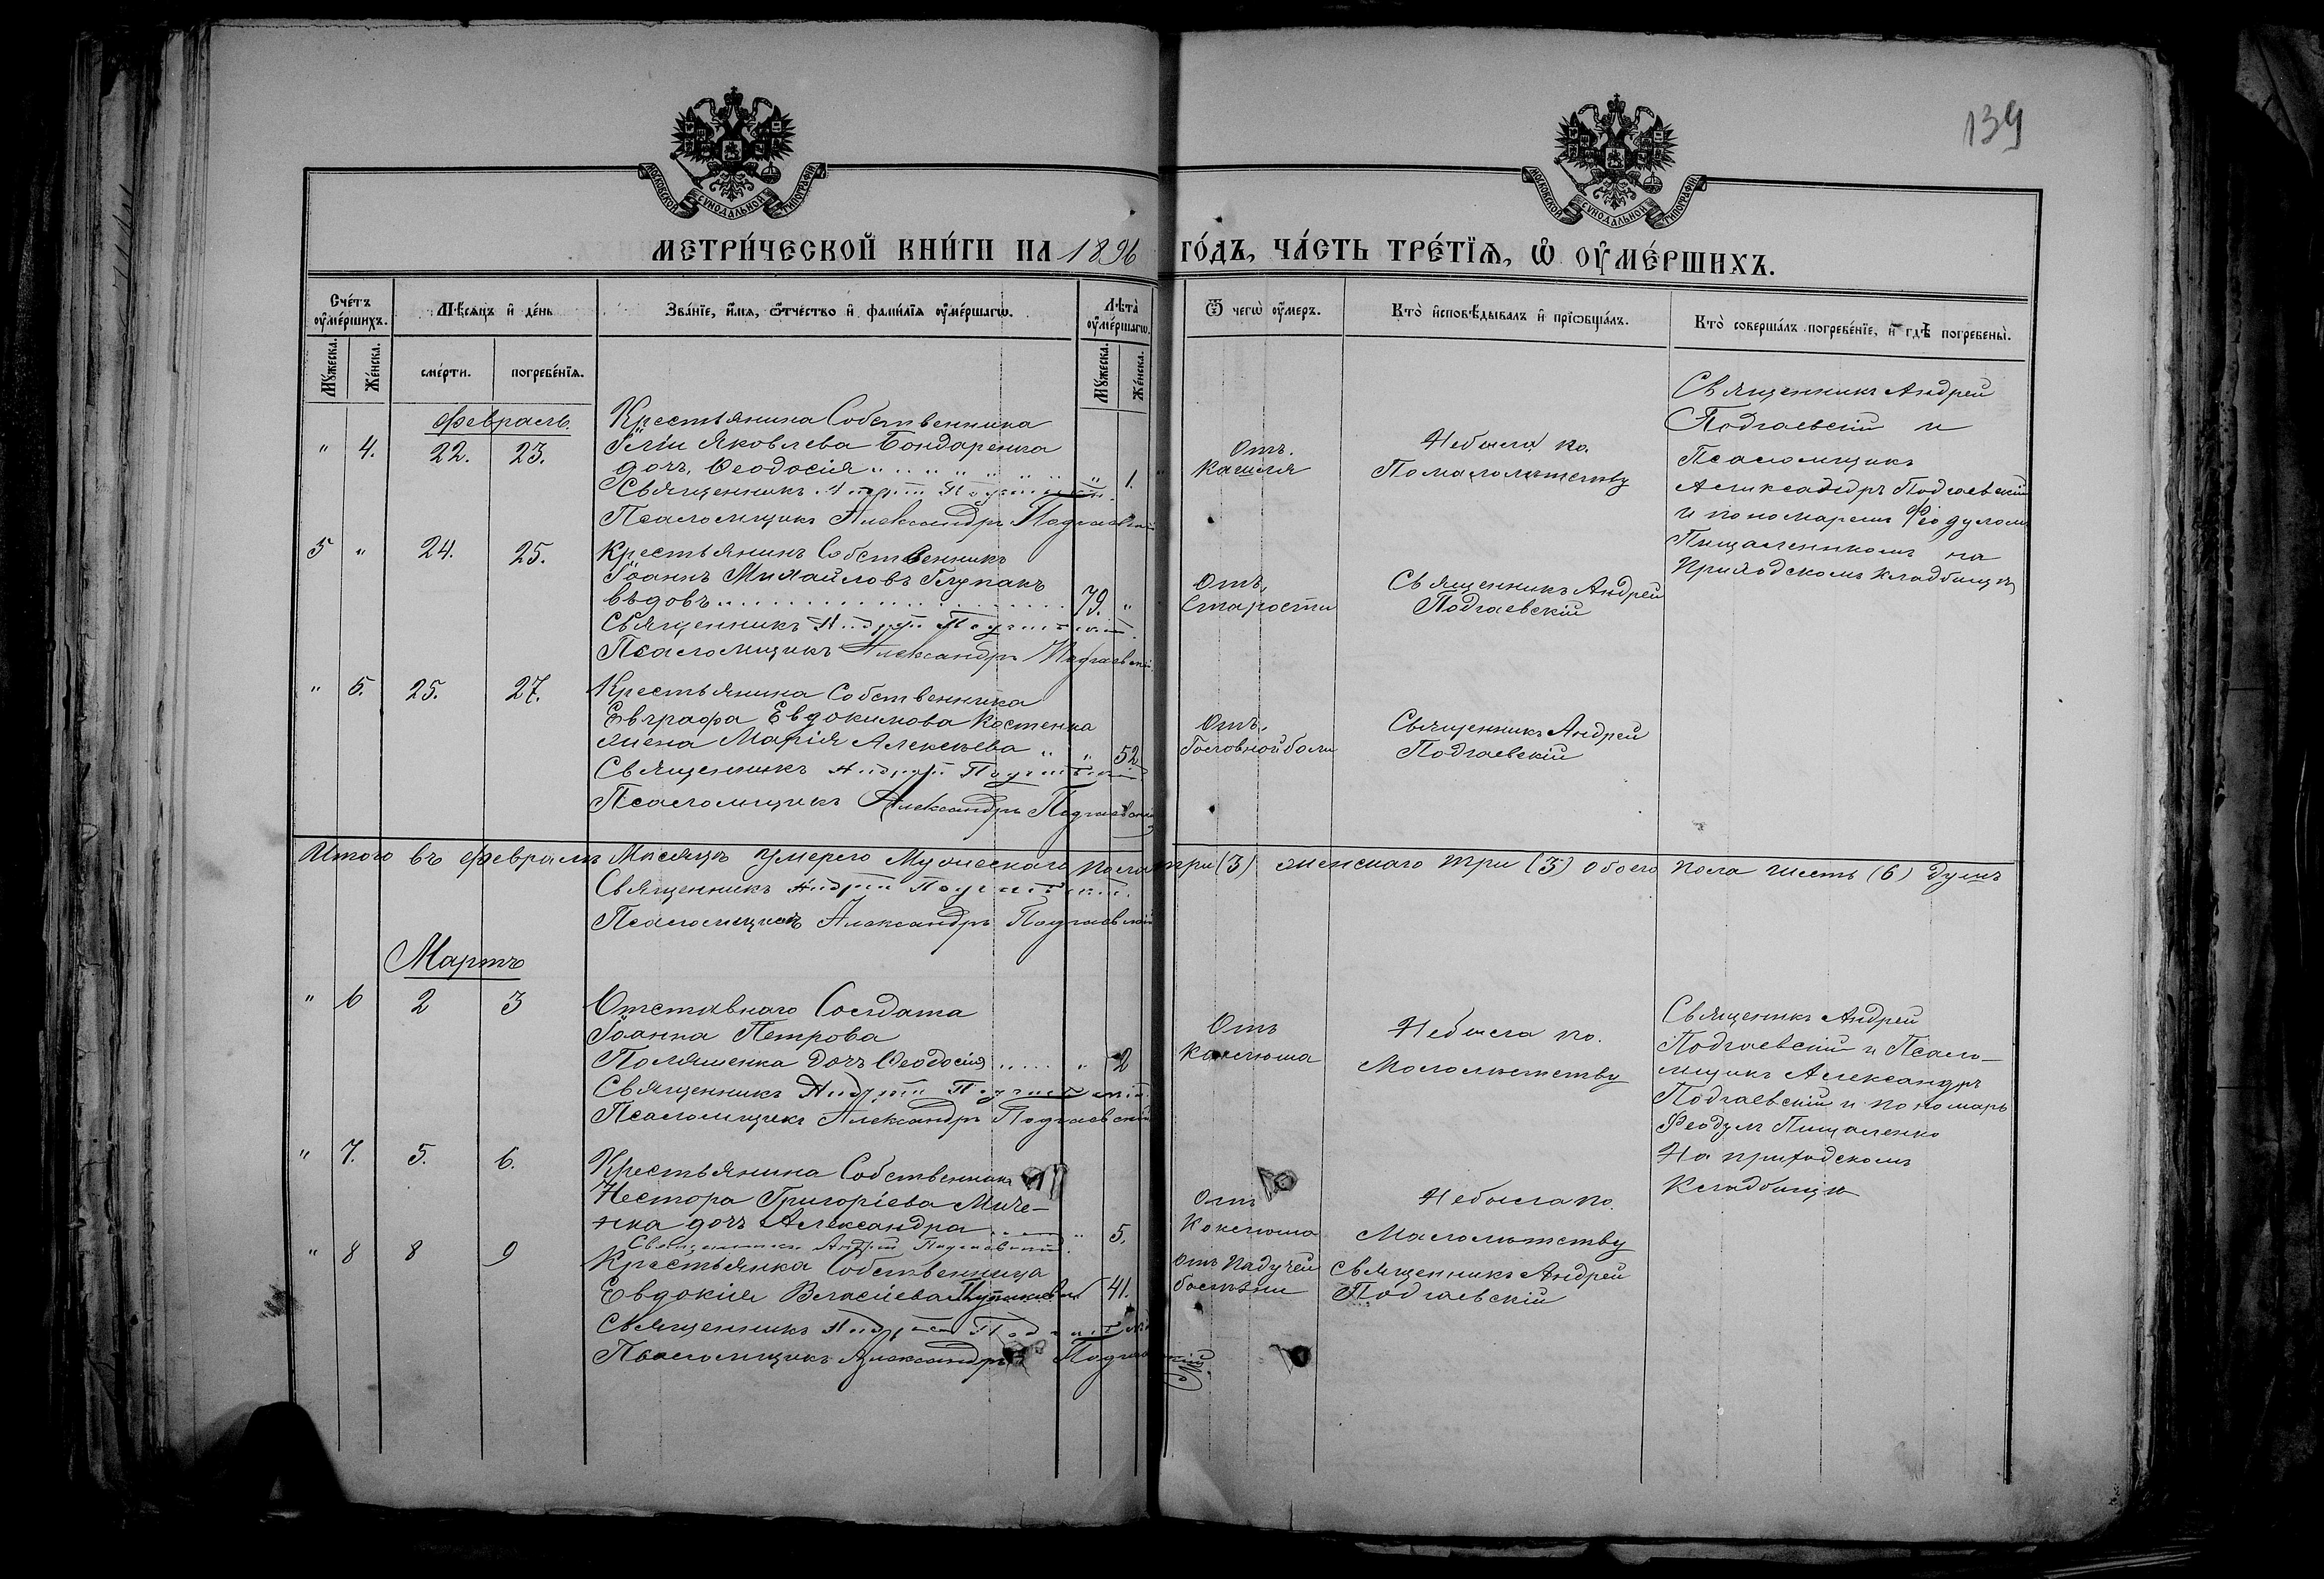 139
МОСКОВСКОЙ СѴНОДАЛЬНОЙ ТИПОГРАФІИ
МОСКОВСКОЙ СѴНОДАЛЬНОЙ ТИПОГРАФІИ
МЕТРИ́ЧЕСКОЙ КНИ́ГИ НА 1896 ГО́ДЪ, ЧА́СТЬ ТРЕ́ТЇѦ, Ѽ ОУ҆МЕ́РШИХЪ.
Сче́тъ ᲂу҆ме́ршихъ.
Мꙋ́жеска.
Же́нска.
Мѣ́сяцъ и҆ де́нь
сме́рти.
погребе́нїя.
Зва́нїе, и҆́мя, ѻ҆́тчество и҆ фами́лїя ᲂу҆ме́ршагѡ.
Лѣ́та ᲂу҆ме́ршагѡ.
Мꙋ́жеска.
Же́нска.
Ѿ чегѡ̀ ᲂу҆́меръ.
Кто̀ и҆сповѣ́дывалъ и҆ прїѡбща́лъ.
Кто̀ соверша́лъ погребе́нїе, и҆ гдѣ̀ погребены̀.
Февраль.
" 4. 22. 23.
Крестьянина Собственника
Іліи Яковлева Бондаренка
дочь, Ѳеодосія " 1.
Священникъ Андрей Подгаевскій
Псаломщикъ Александръ Подгаевскій
Отъ
Кашля
Небыла по.
Помалолѣтству
Священникъ Андрей
Подгаевскій и
Псаломщикъ
Александръ Подгаевскій
и пономаремъ Феодуломъ
Пищаленкомъ на
Приходскомъ кладбищѣ
5 " 24. 25.
Крестьянинъ Собственникъ
Іоаннъ Михайловъ Глупакъ
вѣдовъ 79. "
Священникъ Андрей Подгаевскій
Псаломщикъ Александръ Подгаевскій
Отъ
Старости
Священникъ Андрей
Подгаевскій
" 5. 25. 27.
Крестьянина Собственника
Евграфа Евдокимова Костенка
жена Марія Алексѣева " 52
Священникъ Андрей Подгаевскій
Псаломщикъ Александръ Подгаевскій
Отъ
Головной боли
Священникъ Андрей
Подгаевскій
Итого въ февралѣ Мѣсяцѣ умерло Мужескаго пола три (3) женскаго три (3) обоего пола шесть (6) душъ
Священникъ Андрей Подгаевскій
Псаломщикъ Александръ Подгаевскій
Мартъ
" 6 2 3
Отставнаго Солдата
Іоанна Петрова
Поляшенка дочь Ѳеодосія " 2
Священникъ Андрей Подгаевскій
Псаломщикъ Александръ Подгаевскій
Отъ
Коклюша
Небыла по.
Малолѣтству
Священикъ Андрей
Подгаевскій и Псало-
мщикъ Александръ
Подгаевскій и пономарь
Феодулъ Пищаленко
На приходскомъ
Кладбищѣ
" 7. 5. 6.
Крестьянина Собственника
Нестора Григоріева Миче-
нка дочь Александра " 5.
Священникъ Андрей Подгаевскій
Отъ
Коклюша
Небыла по.
Малолѣтству
" 8 8 9
Крестьянка Собственница
Евдокія Власіева 41.
Священникъ Андрей Подгаевскій
Псаломщикъ Александръ Подгаевскій
Отъ Падучей
болѣзни
Священникъ Андрей
Подгаевскій